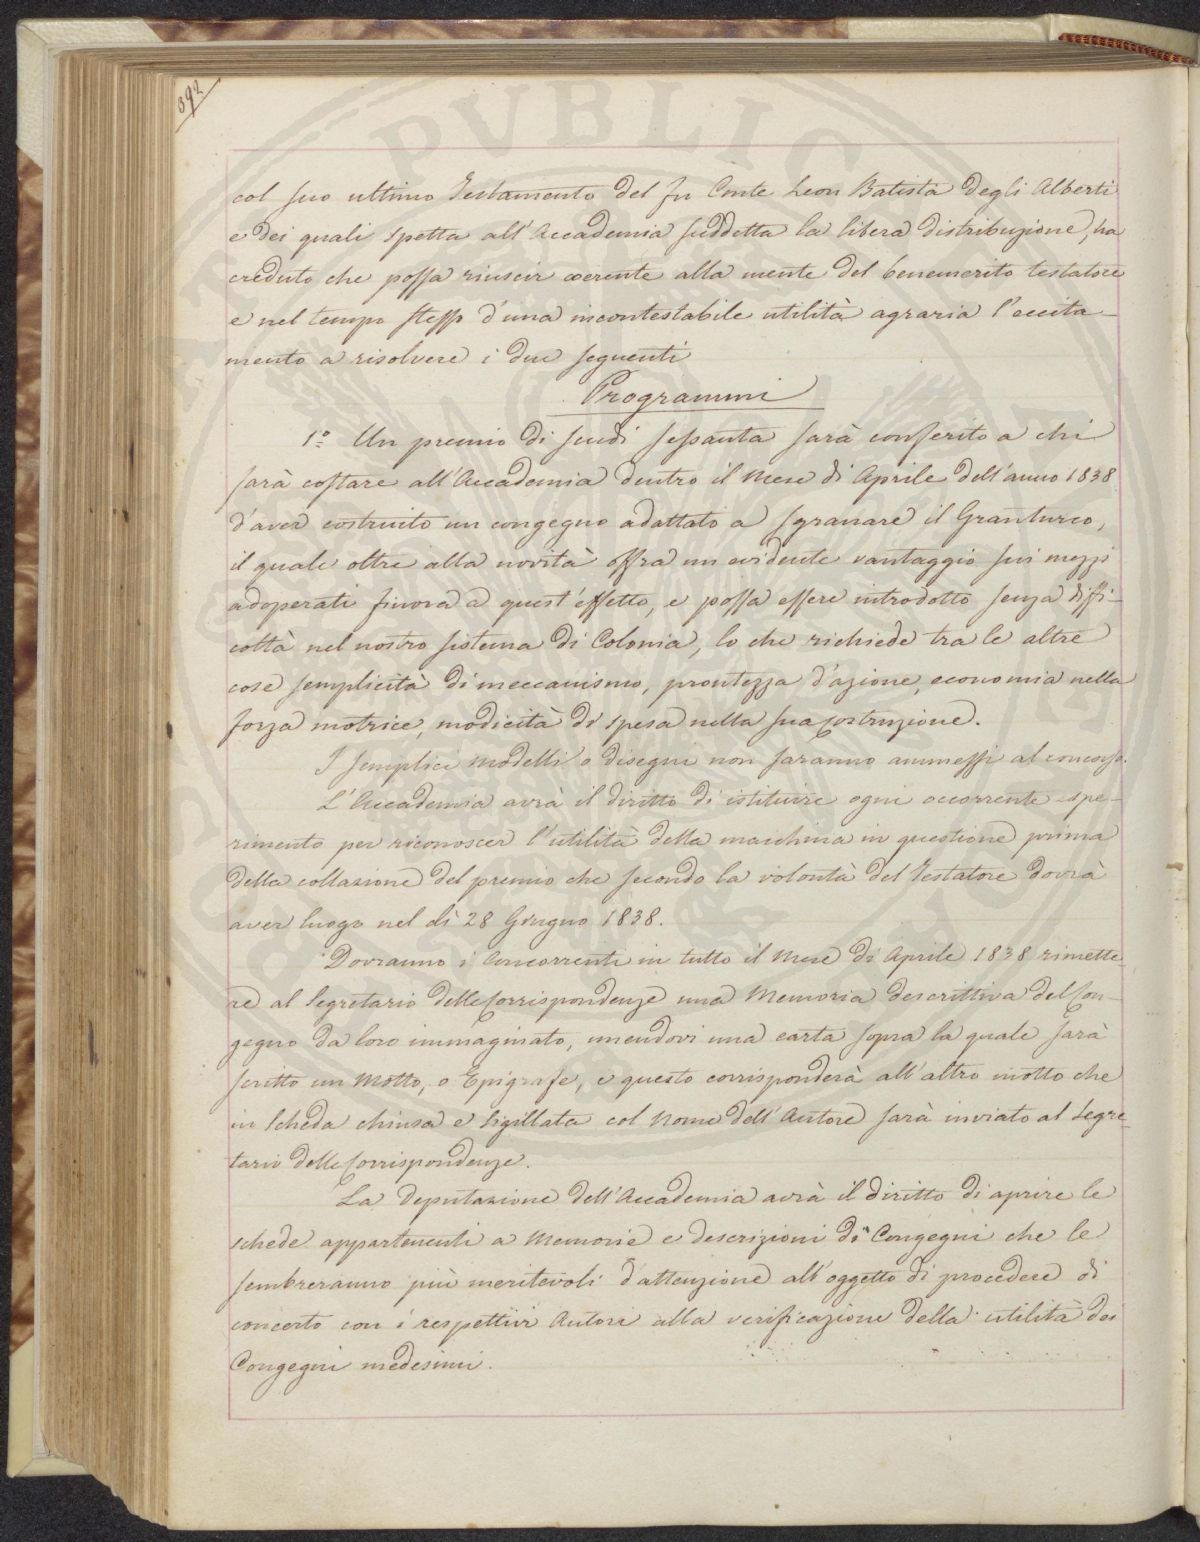 392
PVBLIC
col suo ultimo Testamento del fu Conte Leon Batista degli Alberti
e dei quali spetta all'Accademia suddetta la libera distribuzione, ha
creduto che possa riuscir coerente alla mente del benemerito testatore
e nel tempo stesso d'una incontestabile utilità agraria l'eccita-
mento a risolvere i due seguenti
Programmi
1º Un premio di scudi sessanta sarà conferito a chi
farà costare all'Accademia dentro il Mese di Aprile dell'anno 1838
d'aver costruito un congegno adattato a sgranare il Granturco,
il quale oltre alla novità offra un evidente vantaggio sui mezzi
adoperati finora a quest'effetto, e possa essere introdotto senza diffi-
coltà nel nostro sistema di Colonia, lo che richiede tra le altre
cose semplicità di meccanismo, prontezza d'azione, economia nella
forza motrice, modicità di spesa nella sua costruzione.
I semplici modelli o disegni non saranno ammessi al concorso.
L'Accademia avrà il diritto di istituire ogni occorrente spe-
rimento per riconoscer l'utilità della macchina in questione prima
della collazione del premio che secondo la volontà del Testatore dovrà
aver luogo nel dì 28 Giugno 1838.
Dovranno i Concorrenti in tutto il Mese di Aprile 1838 rimette-
re al Segretario delle Corrispondenze una Memoria descrittiva del Con-
gegno da loro immaginato, unendovi una carta sopra la quale sarà
scritto un Motto, o Epigrafe, e questo corrisponderà all'altro motto che
in scheda chiusa e sigillata col Nome dell'Autore sarà inviato al Segre-
tario delle Corrispondenze.
La Deputazione dell'Accademia avrà il diritto di aprire le
schede appartenenti a Memorie e descrizioni di Congegni che le
sembreranno più meritevoli d'attenzione all'oggetto di procedere di
concerto con i respettivi Autori alla verificazione della utilità dei
Congegni medesimi.